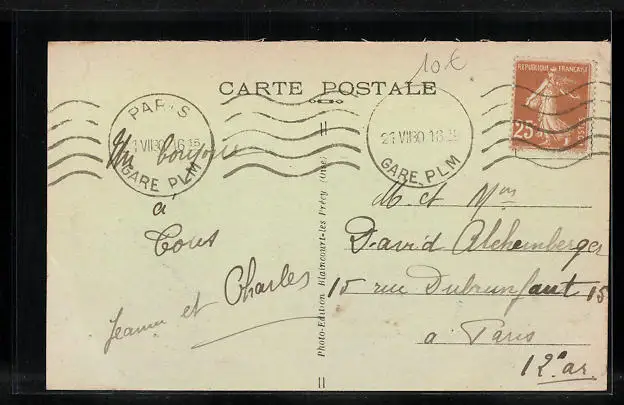 10 €
CARTE POSTALE
REPUBLIQUE FRANÇAISE
25c
POSTES
PARIS
21 VII 30 16 15
GARE PLM
21 VII 30 16 15
GARE PLM
Un bonjour
à
Tous
Jeanne et Charles
Photo-Edition Blaincourt-les Précy (Oise)
M. et Mme
David Alchemberger
15 rue Dubrunfaut 15
a Paris
12e ar.